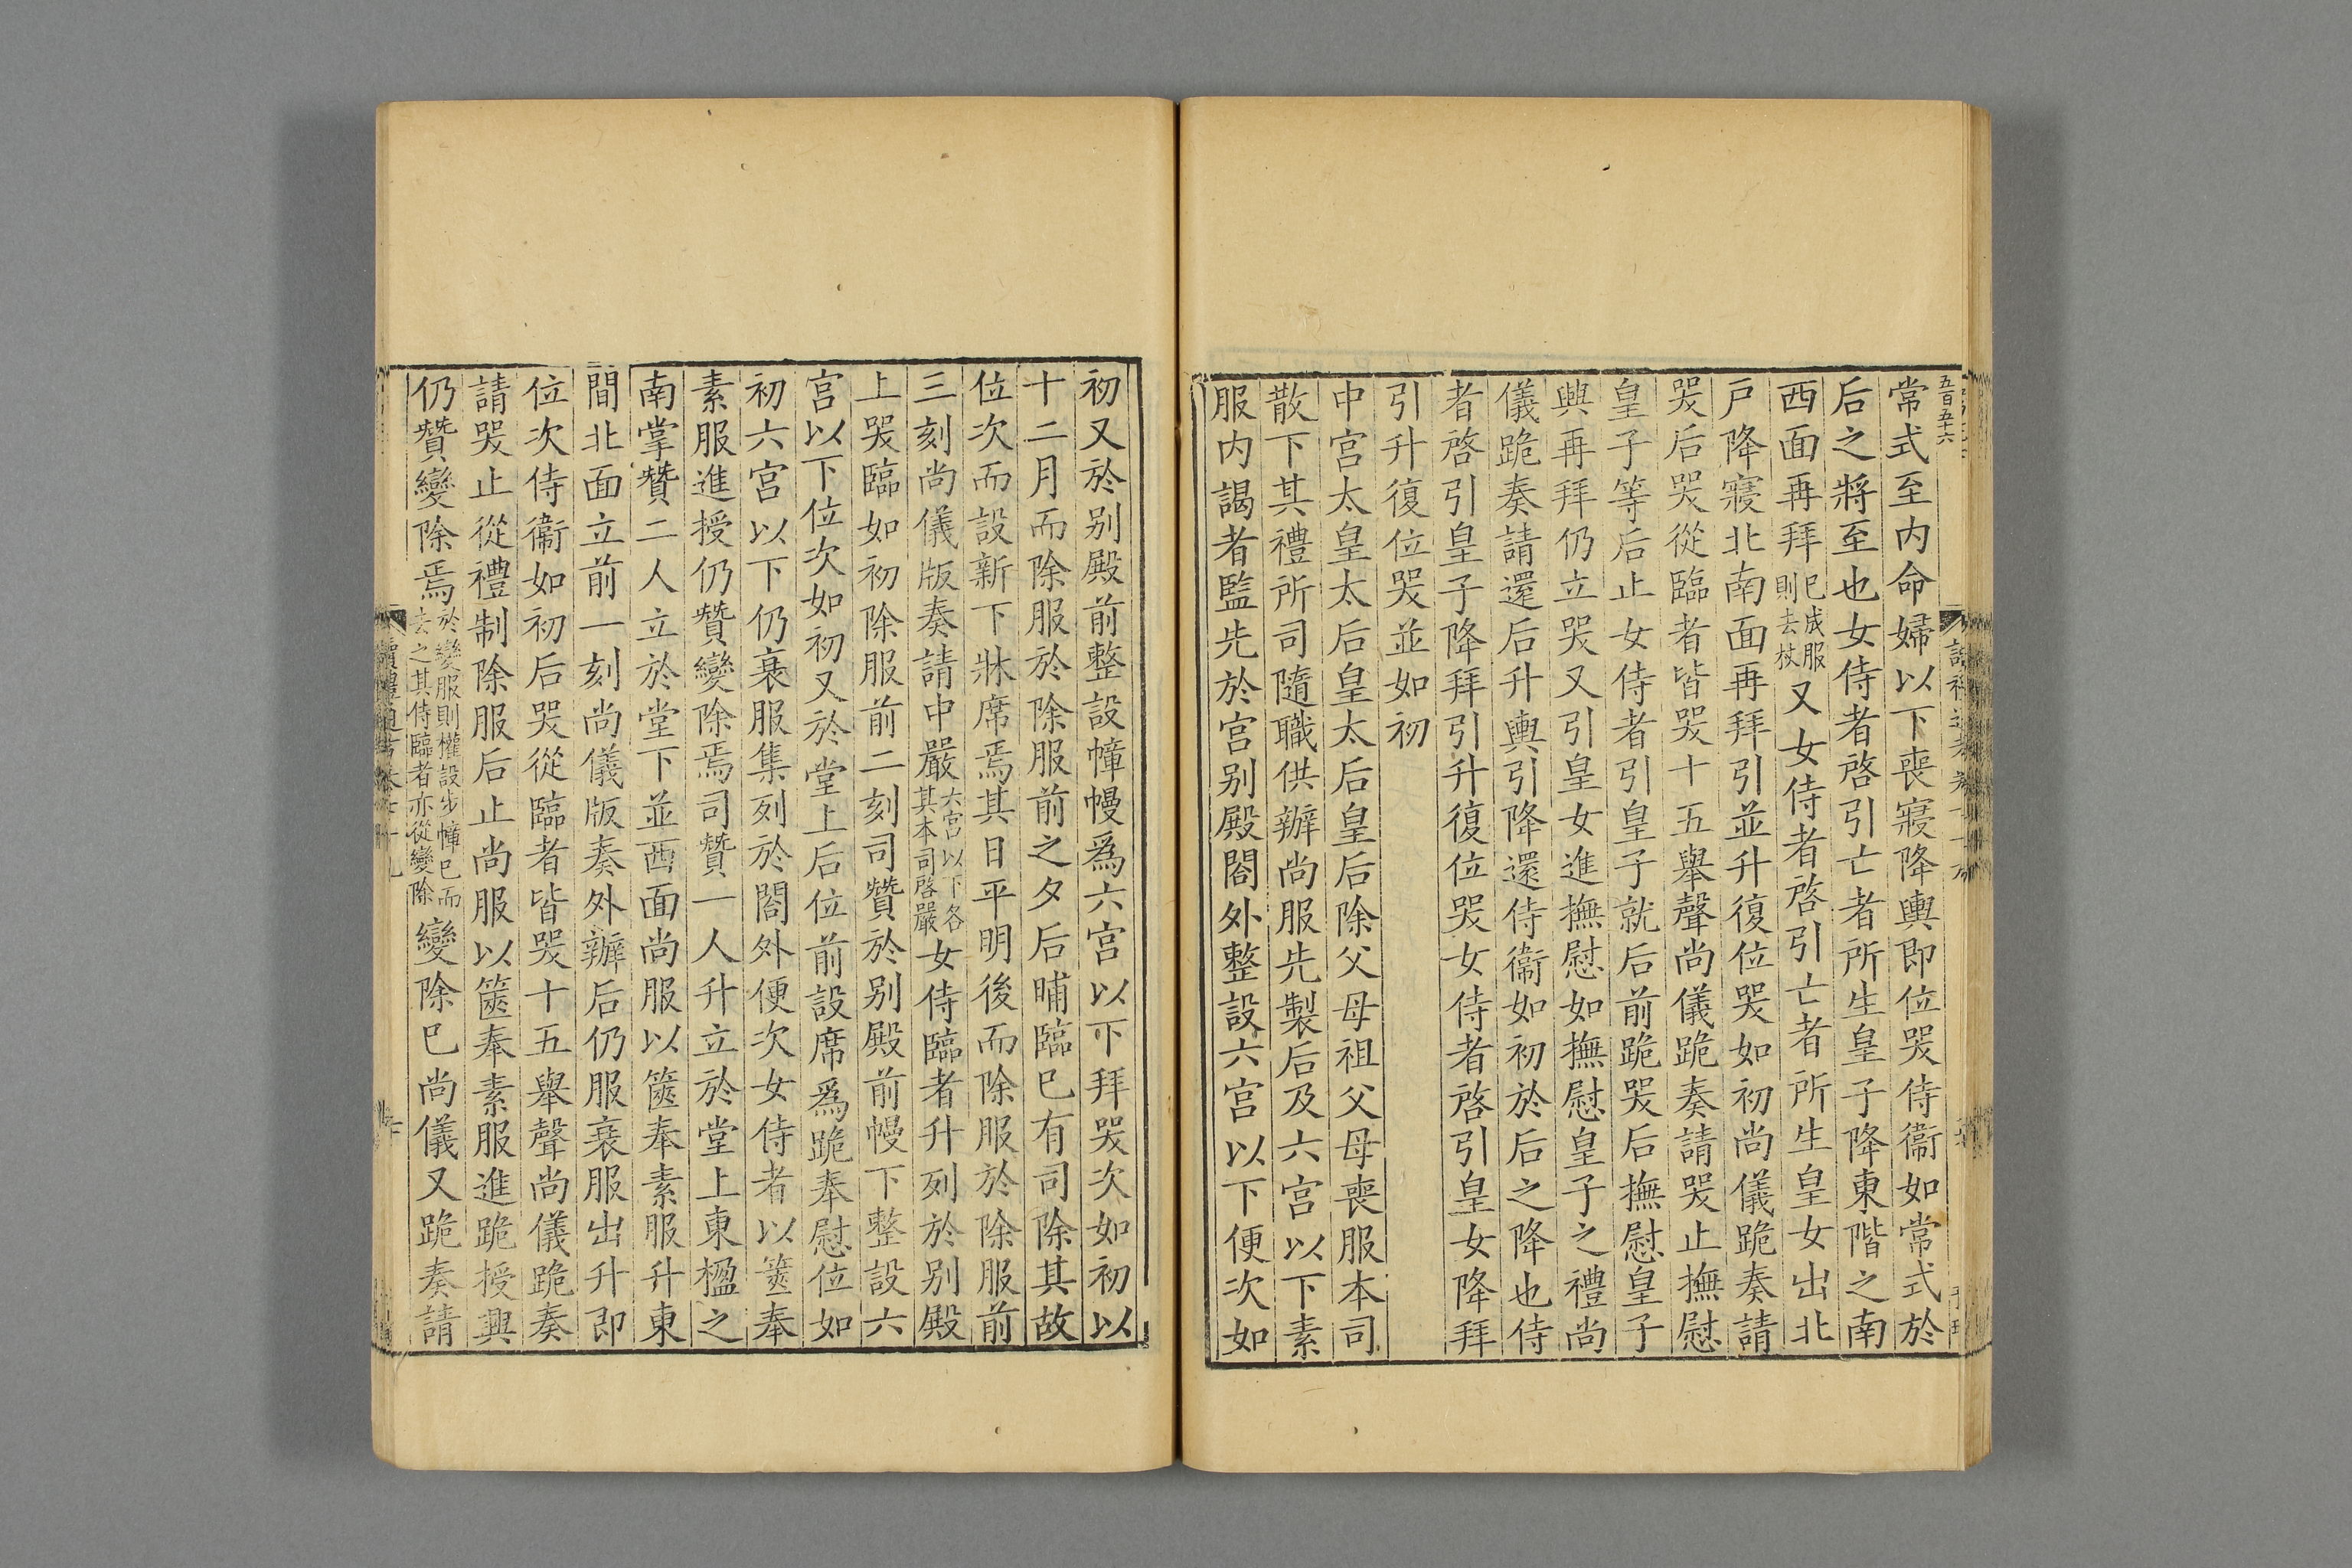 五百五十六
常式至内命婦以下喪寢降輿即位哭侍衞如常式於
后之將至也女侍者啓引亡者所生皇子降東階之南
西面再拜已成服則去杖又女侍者啓引亡者所生皇女出北
戸降寢北南面再拜引並升復位哭如初尚儀跪奏請
哭后哭從臨者皆哭十五舉聲尚儀跪奏請哭止撫慰
皇子等后止女侍者引皇子就后前跪哭后撫慰皇子
興再拜仍立哭又引皇女進撫慰如撫慰皇子之禮尚
儀跪奏請還后升輿引降還侍衞如初於后之降也侍
者啓引皇子降拜引升復位哭女侍者啓引皇女降拜
引升復位哭並如初
中宮太皇太后皇太后皇后除父母祖父母喪服本司
散下其禮所司隨職供辦尚服先製后及六宮以下素
服内謁者監先於宮别殿閤外整設六宮以下便次如
初又於别殿前整設幛幔爲六宮以下拜哭次如初以
十二月而除服於除服前之夕后晡臨已有司除其故
位次而設新下牀席焉其日平明後而除服於除服前
三刻尚儀版奏請中嚴六宮以下各其本司啓嚴女侍臨者升列於别殿
上哭臨如初除服前二刻司贊於别殿前幔下整設六
宮以下位次如初又於堂上后位前設席爲跪奉慰位如
初六宮以下仍衰服集列於閤外便次女侍者以篋奉
素服進授仍贊變除焉司贊一人升立於堂上東楹之
南掌贊二人立於堂下並西面尚服以篋奉素服升東
間北面立前一刻尚儀版奏外辦后仍服衰服出升即
位次侍衞如初后哭從臨者皆哭十五舉聲尚儀跪奏
請哭止從禮制除服后止尚服以篋奉素服進跪授興
仍贊變除焉於變服則權設步幛已而去之其侍臨者亦從變除變除已尚儀又跪奏請